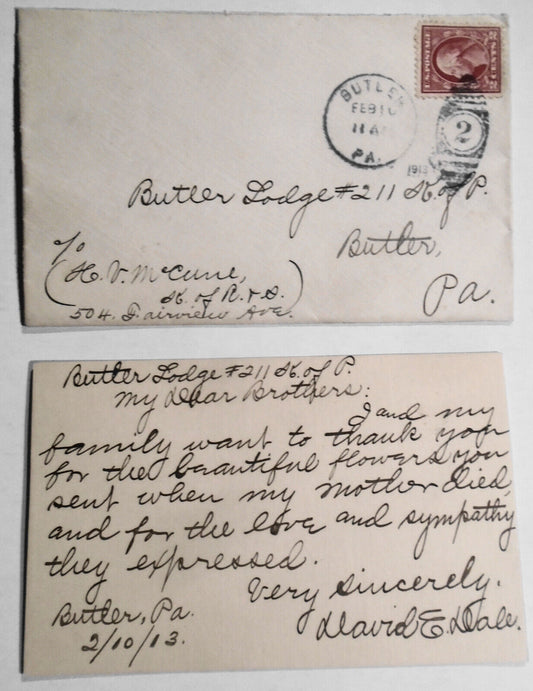 U.S. POSTAGE
2 CENTS 2
BUTLER
FEB 10
11 AM
PA.
1913
2
Butler Lodge #211 K. of P.
Butler,
Pa.
℅
(H. V. McCune,
K. of R. & S.)
504. Fairview Ave.
Butler Lodge #211 K. of P.
My Dear Brothers:
I and my
family want to thank you
for the beautiful flowers you
sent when my mother died,
and for the love and sympathy
they expressed.
Very sincerely.
David E. Dale.
Butler, Pa.
2/10/13.